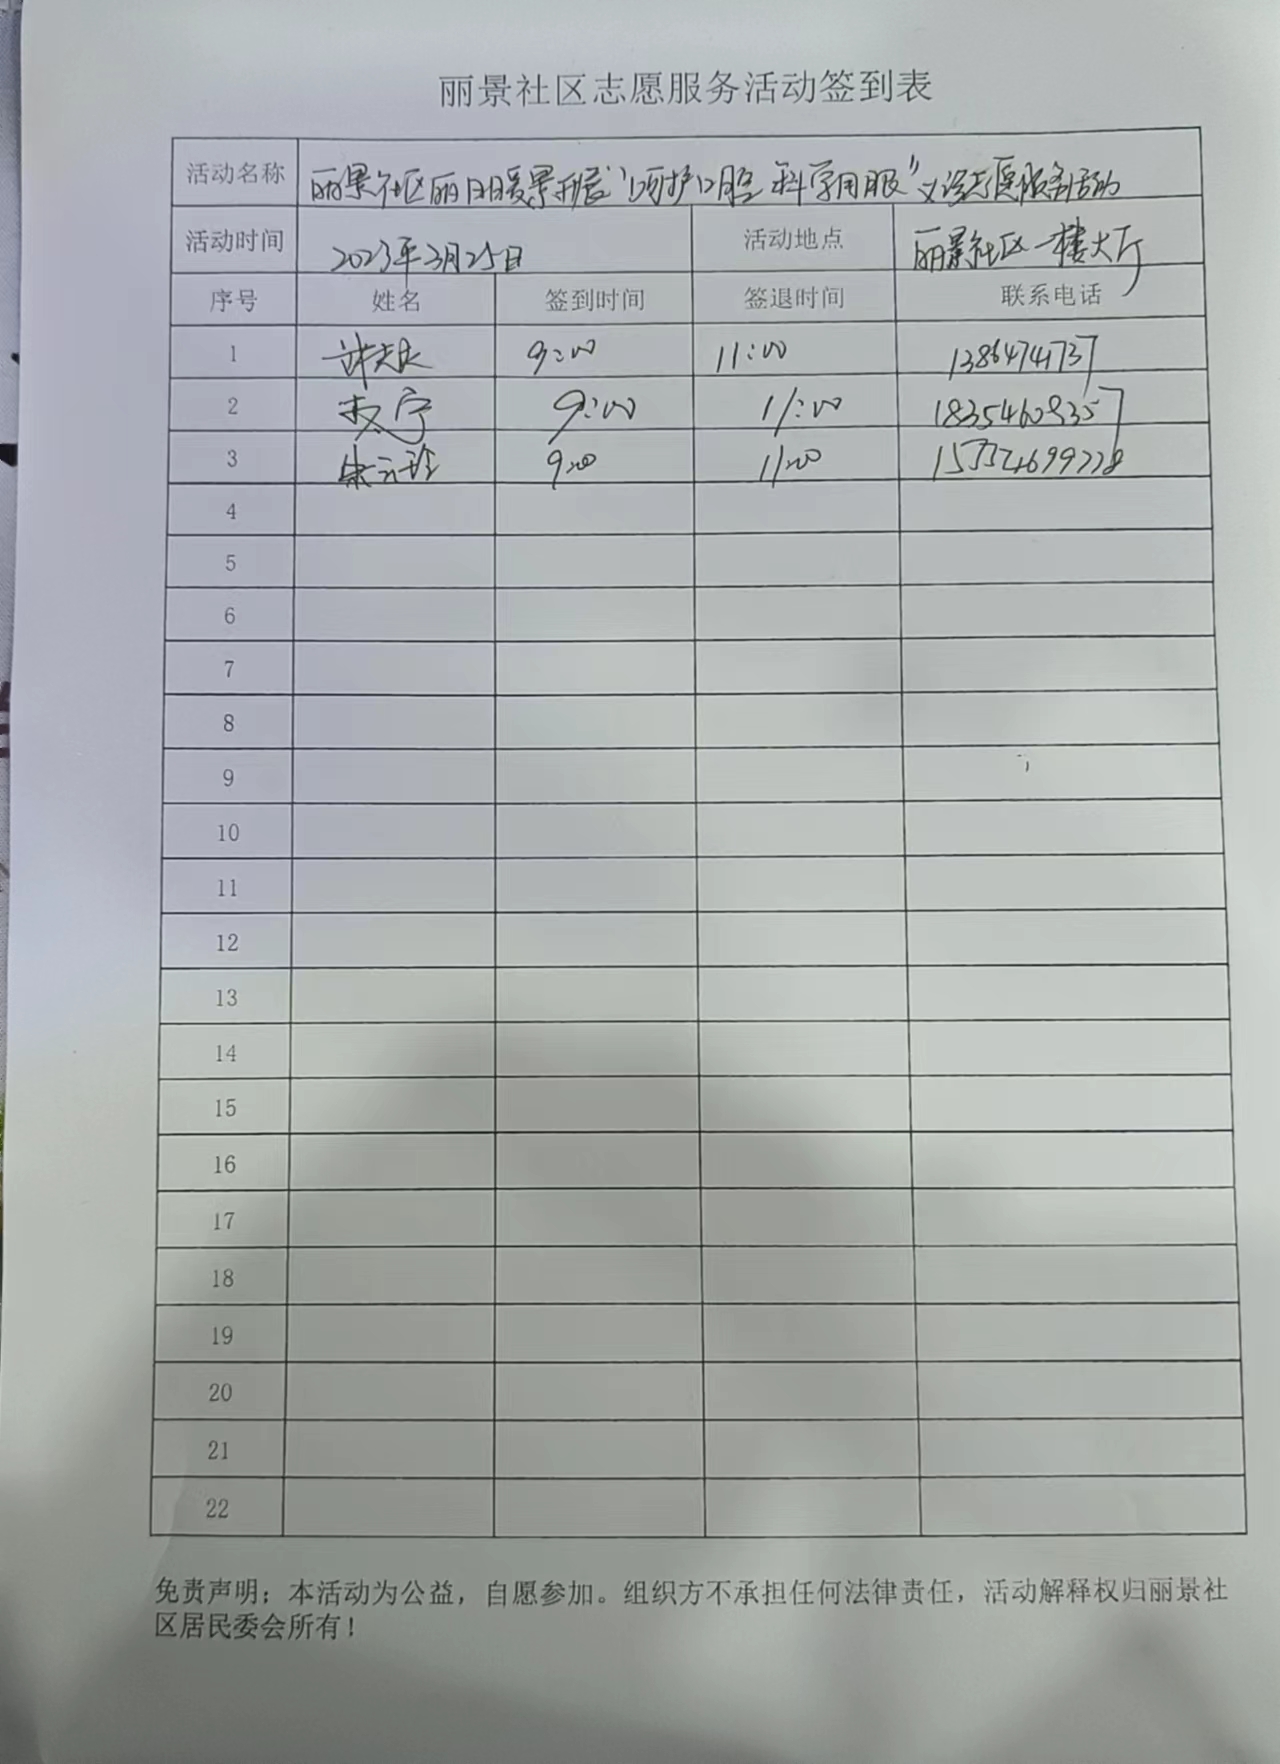 丽景社区志愿服务活动签到表
活动名称 丽景社区丽日暖景开展“呵护口腔 科学用服”义诊志愿服务活动
活动时间 2023年3月25日 活动地点 丽景社区一楼大厅
序号 姓名 签到时间 签退时间 联系电话
1 9:00 11:00 13864741737
2 宁 9:00 11:00 18354608357
3 9:00 11:00
4
5
6
7
8
9
10
11
12
13
14
15
16
17
18
19
20
21
22
免责声明：本活动为公益，自愿参加。组织方不承担任何法律责任，活动解释权归丽景社
区居民委会所有！